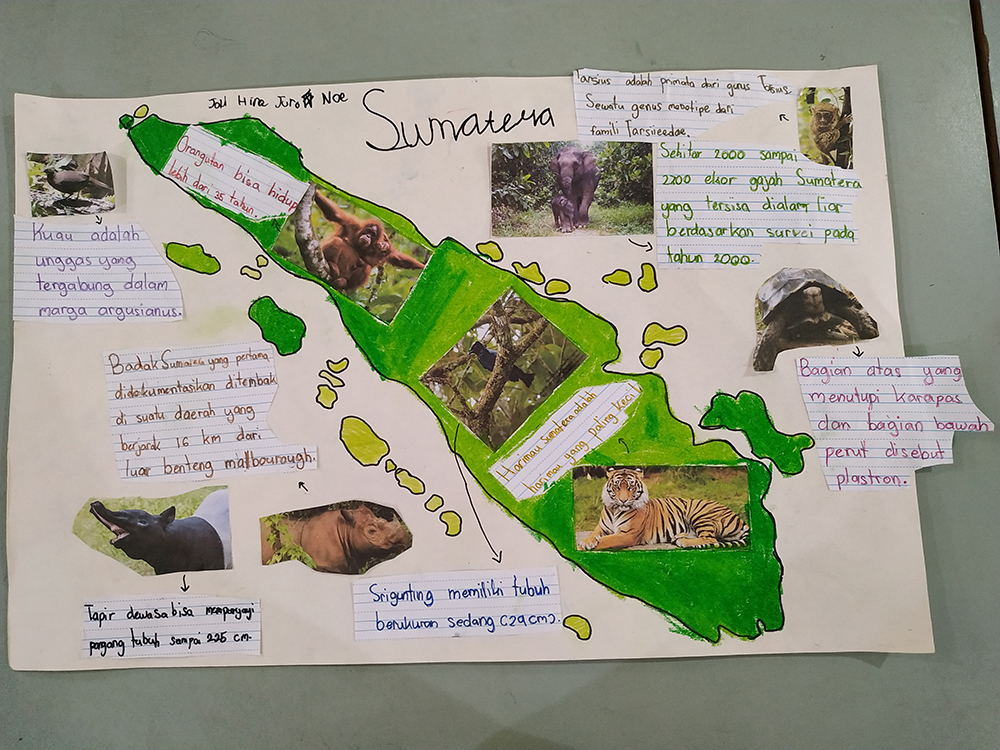 Joli Hira Juro Noe
Sumatera
Tarsius adalah primata dari gunus Tarsius.
Sewatu genus monotipe dari
famili Tarsiieedae.
Orangutan bisa hidup
lebih dari 35 tahun.
Sekitar 2000 sampai
2200 ekor gajah Sumatera
yang tersisa dialam liar
berdasarkan survei pada
tahun 2000.
Kuau adalah
unggas yang
tergabung dalam
marga argusianus.
Badak Sumatera yang pertama
didokumentasikan ditembak
di suatu daerah yang
berjarak 16 km dari
luar benteng mallbourough.
Harimau Sumatera adalah
harimau yang paling kecil
Bagian atas yang
menutupi karapas
dan bagian bawah
perut disebut
plastron.
Tapir dewasa bisa mempunyai
panjang tubuh sampai 225 cm.
Srigunting memiliki tubuh
berukuran sedang (29cm).